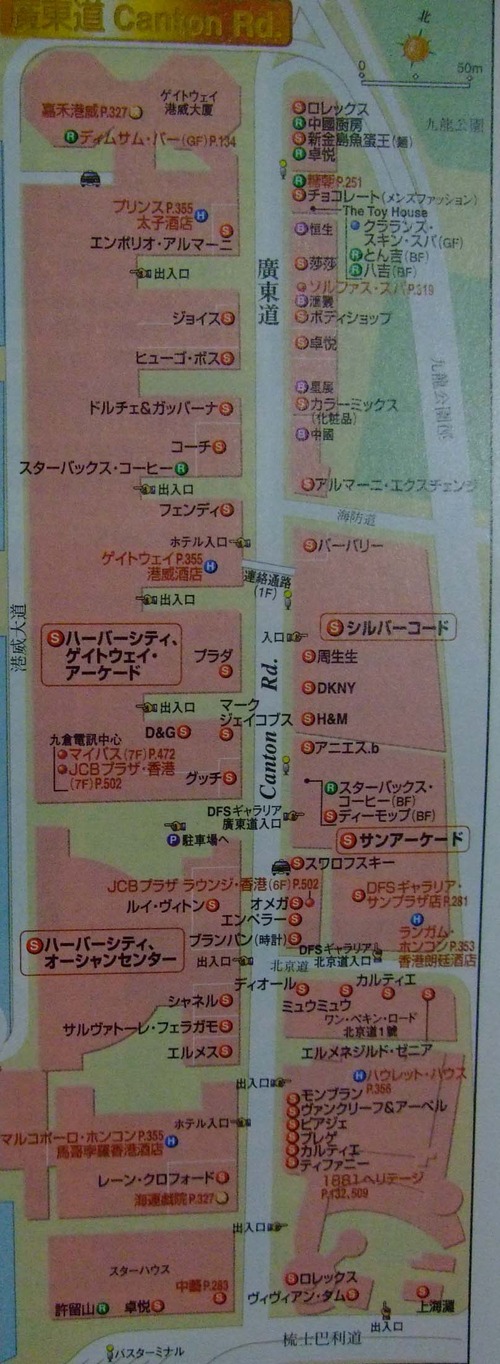 廣東道 Canton Rd.
北
0 50m
嘉禾港威P.327
ゲイトウェイ
港威大厦
R ディムサム・バー(GF)P.134
S ロレックス
R 中國廚房
S 新金島魚蛋王(麺)
R 卓悦
九龍公園
R 糖朝P.251
S チョコレート(メンズファッション)
The Toy House
プリンス P.355
太子酒店 H
エンポリオ・アルマーニ S
B 恒生
クラランス・
スキン・スパ(GF)
R とん吉(BF)
R 八吉(BF)
S 莎莎
ソルファス・スパP.319
B 滙豐
S ボディショップ
出入口
廣東道
ジョイス S
ヒューゴ・ボス S
S 卓悦
B 星展
ドルチェ&ガッバーナ S
S カラーミックス
(化粧品)
B 中國
コーチ S
スターバックス・コーヒー R
出入口
S アルマーニ・エクスチェンジ
フェンディ S
海防道
ホテル入口
ゲイトウェイ P.355
港威酒店 H
S バーバリー
連絡通路
(1F)
出入口
港威大道
S ハーバーシティ、
ゲイトウェイ・
アーケード
入口
S シルバーコード
プラダ S
S 周生生
S DKNY
出入口
Canton Rd.
マーク
ジェイコブス S
S H&M
D&G S
九倉電訊中心
マイバス(7F)P.472
JCBプラザ・香港
(7F)P.502
グッチ S
S アニエス.b
R スターバックス・
コーヒー(BF)
S ディーモップ(BF)
DFSギャラリア
廣東道入口
P 駐車場へ
S サンアーケード
S スワロフスキー
JCBプラザ ラウンジ・香港(6F)P.502
S DFSギャラリア・
サンプラザ店P.281
ルイ・ヴィトン S
オメガ S
エンペラー S
H
ランガム・
ホンコンP.353
香港朗廷酒店
S ハーバーシティ、
オーシャンセンター
ブランパン(時計) S
DFSギャラリア
北京道入口
出入口
北京道
ディオール S
カルティエ
S
S
S
シャネル S
ミュウミュウ
ワン・ペキン・ロード
北京道1號
サルヴァトーレ・フェラガモ S
エルメス S
エルメネジルド・ゼニア
出入口
H ハウレット・ハウス
P.356
S モンブラン
S ヴァンクリーフ&アーペル
S ピアジェ
S ブレゲ
S カルティエ
S ティファニー
ホテル入口
マルコポーロ・ホンコンP.355
馬哥孛羅香港酒店 H
1881ヘリテージ
P.132、509
レーン・クロフォード S
海運戯院P.327
出入口
スターハウス
中藝P.283
S
許留山 R
卓悦 S
S ロレックス
ヴィヴィアン・タム S
S
上海灘
出入口
梳士巴利道
バスターミナル